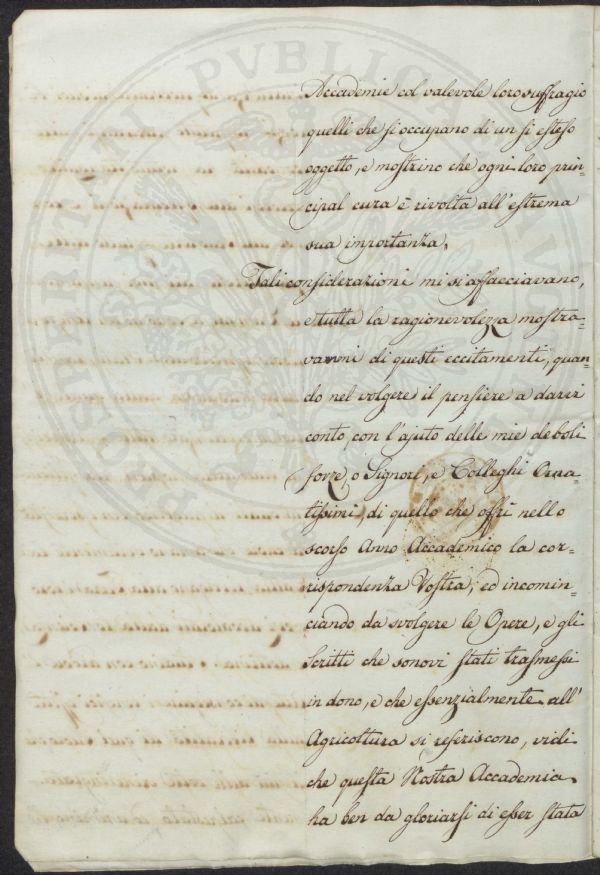 Accademie col valevole loro suffragio
quelli che si occupano di un si esteso
oggetto, e mostrino che ogni loro prin-
cipal cura è rivolta all'estrema
sua importanza.
Tali considerazioni mi si affacciavano,
e tutta la ragionevolezza mostra-
vanmi di questi eccitamenti, quan-
do nel volgere il pensiere a darvi
conto con l'ajuto delle mie deboli
forze, o Signori, e Colleghi Orna-
tissimi, di quello che offrì nello
scorso Anno Accademico la cor-
rispondenza Vostra; ed incomin-
ciando da svolgere le Opere, e gli
Scritti che sonovi stati trasmessi
in dono, e che essenzialmente all'
Agricoltura si referiscono, vidi
che questa Nostra Accademia
ha ben da gloriarsi di esser stata
PROSPERITATI PUBLICAE AU